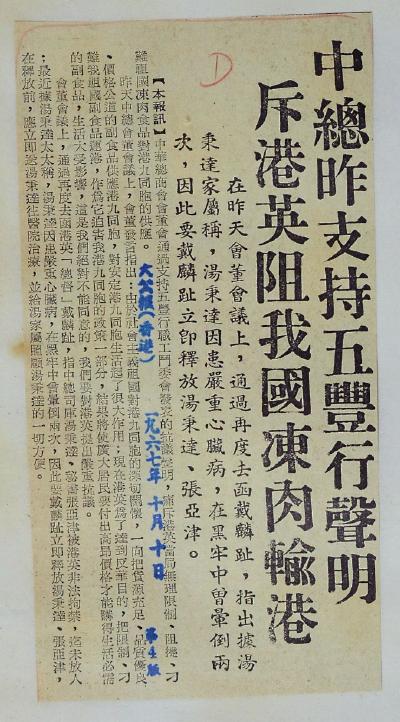 中總昨支持五豐行聲明
斥港英阻我國凍肉輸港
D
在昨天會董會議上，通過再度去函戴麟趾，指出據湯
秉達家屬稱，湯秉達因患嚴重心臟病，在黑牢中曾暈倒兩
次，因此要戴麟趾立即釋放湯秉達、張亞津。
【本報訊】中華總商會會董會通過支持五豐行職工鬥委會發表的抗議聲明，痛斥港英當局無理限制、阻撓、刁
難祖國凍肉食品對港九同胞的供應。
昨天中總會董會議上，會董發言指出：由於社會主義祖國對港九同胞的深切關懷，一向把貨源充足、品質優良
、價格公道的副食品供應港九同胞，對安定港九同胞生活起了很大作用；現在港英為了達到反華目的，把限制、刁
難我祖國副食品運港，作為它迫害我港九同胞的政策一部分，結果將使廣大居民要付出高昂價格才能購得生活必需
的副食品，生活大受影響，這是我們絕對不能同意的，我們要對港英提出嚴重抗議。
會董會議上，通過再度去函港英「總督」戴麟趾，指中總司庫湯秉達、秘書張亞津被港英非法拘禁，迄未放人
；最近據湯秉達太太稱，湯秉達因患嚴重心臟病，在黑牢中曾暈倒兩次，因此要戴麟趾立即釋放湯秉達、張亞津，
在釋放前，應立即送湯秉達往醫院治療，並給湯家屬照顧湯秉達的一切方便。
大公報（香港） 一九六七年 十月 十日 第4版